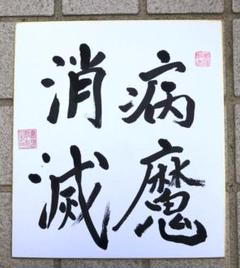 病魔
消滅